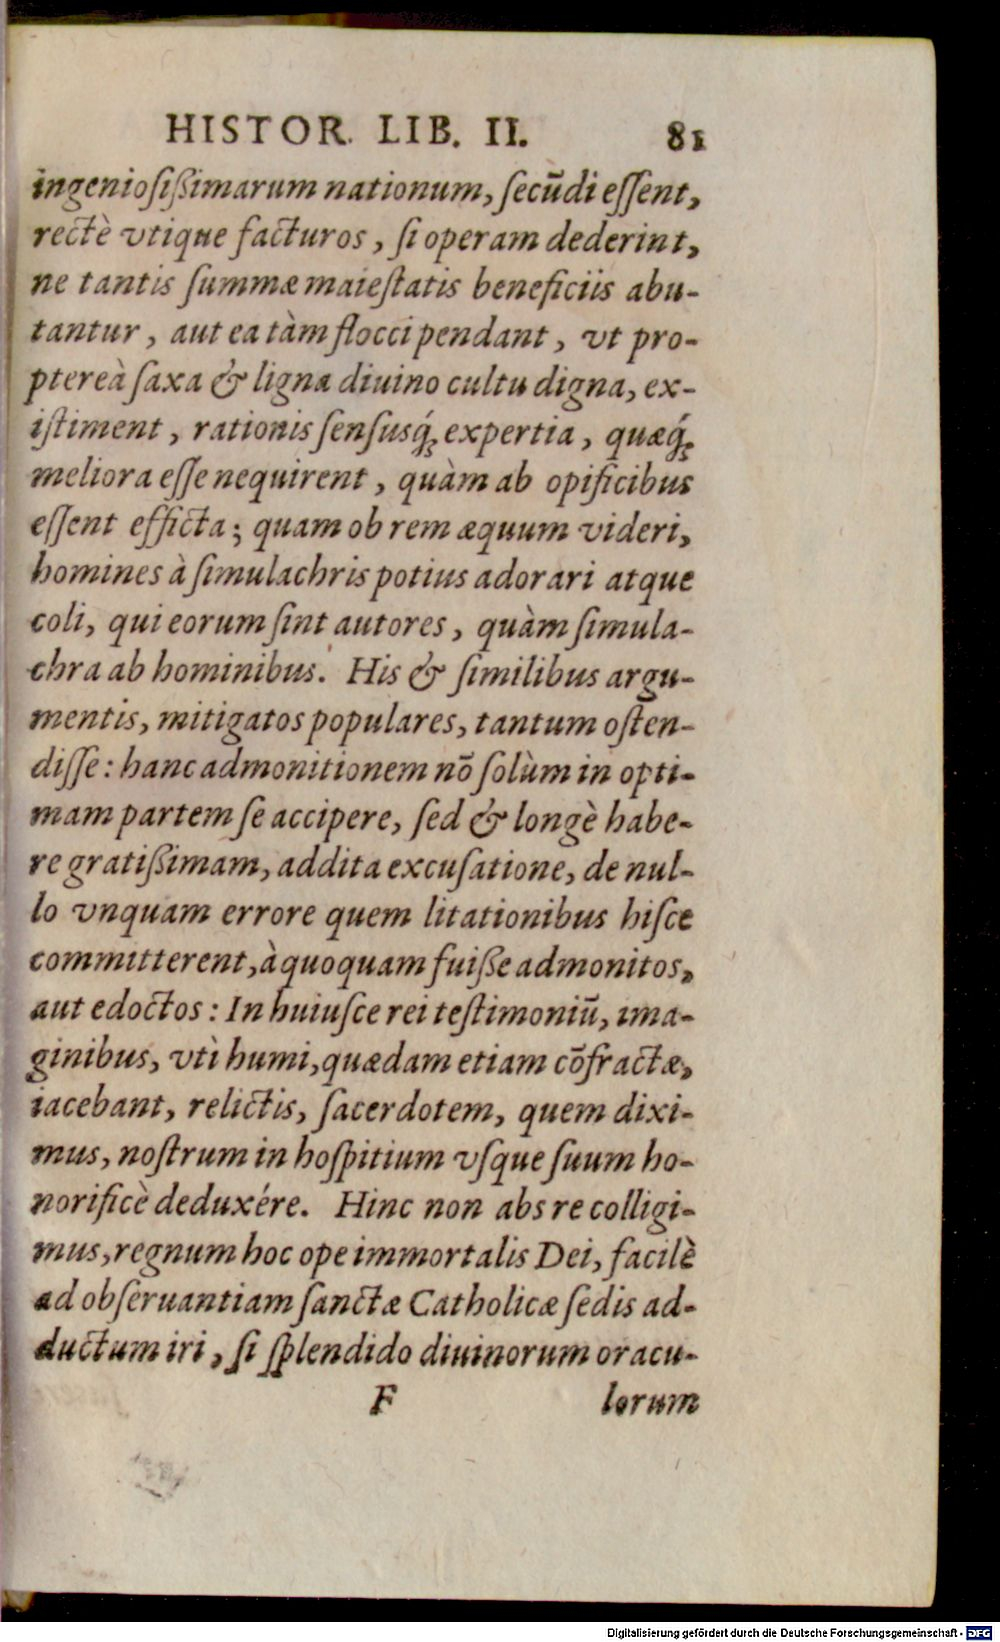 HISTOR. LIB. II. 81
ingeniosißimarum nationum, secūdi essent,
rectè vtique facturos, si operam dederint,
ne tantis summæ maiestatis beneficiis abu-
tantur, aut ea tàm flocci pendant, vt pro-
ptereà saxa & ligna diuino cultu digna, ex-
istiment, rationis sensusq́; expertia, quæq́;
meliora esse nequirent, quàm ab opificibus
essent efficta; quam ob rem æquum videri,
homines à simulachris potius adorari atque
coli, qui eorum sint autores, quàm simula-
chra ab hominibus. His & similibus argu-
mentis, mitigatos populares, tantum osten-
disse: hanc admonitionem nō solùm in opti-
mam partem se accipere, sed & longè habe-
re gratißimam, addita excusatione, de nul-
lo vnquam errore quem litationibus hisce
committerent, à quoquam fuiße admonitos,
aut edoctos: In huiusce rei testimoniū, ima-
ginibus, vtì humi, quædam etiam cōfractæ,
iacebant, relictis, sacerdotem, quem dixi-
mus, nostrum in hospitium vsque suum ho-
norificè deduxére. Hinc non abs re colligi-
mus, regnum hoc ope immortalis Dei, facilè
ad obseruantiam sanctæ Catholicæ sedis ad-
ductum iri, si splendido diuinorum oracu-
F lorum
Digitalisierung gefördert durch die Deutsche Forschungsgemeinschaft - DFG